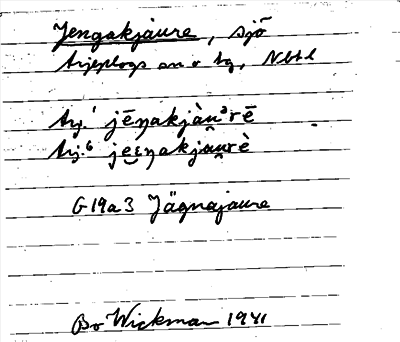 Jengakjaure, sjö
Arjeplogs sn o tg, Nbtl
Arj.¹ jēŋakjàu̯ᵊrē
Arj.⁶ je̮ɛŋakjȧu̯rè
G19a3 Jägnajaure
Bo Wickman 1941